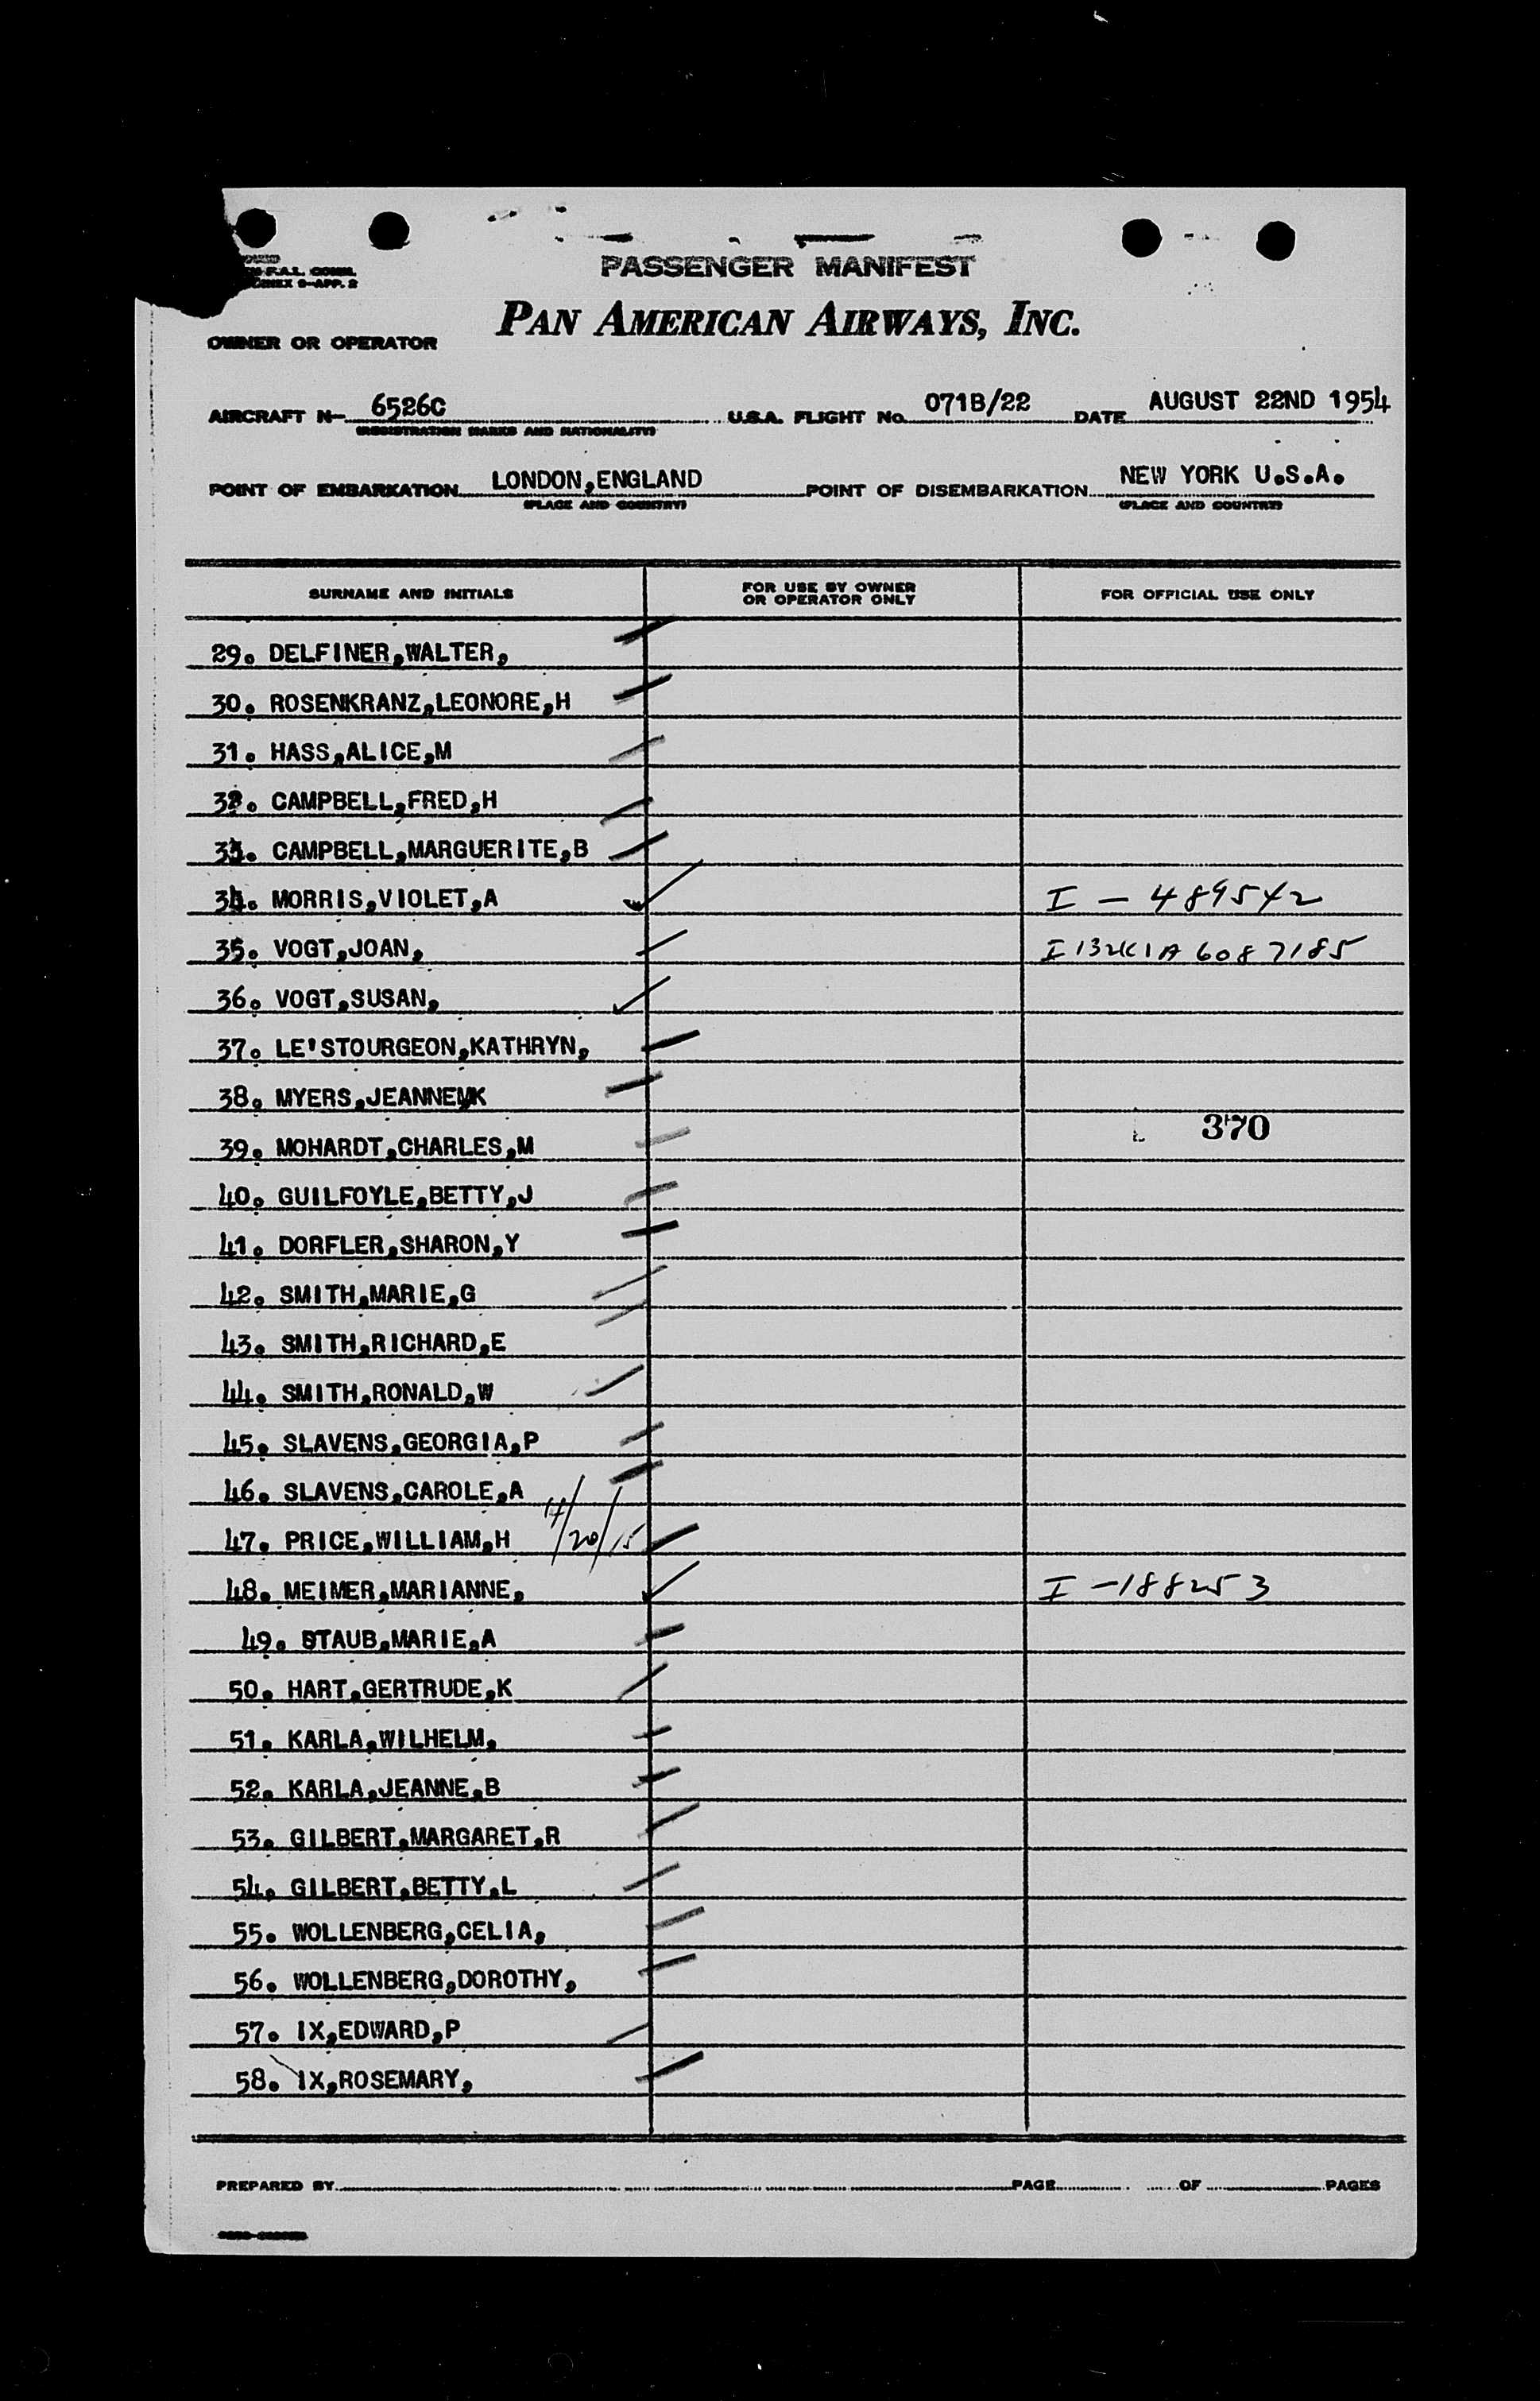 F.A.L. CONN.
ANNEX 9-APP. 2
PASSENGER MANIFEST
PAN AMERICAN AIRWAYS, INC.
OWNER OR OPERATOR
AIRCRAFT N- 6526C U.S.A. FLIGHT No. 071B/22 DATE AUGUST 22ND 1954
(REGISTRATION MARKS AND NATIONALITY)
POINT OF EMBARKATION LONDON,ENGLAND POINT OF DISEMBARKATION NEW YORK U.S.A.
(PLACE AND COUNTRY) (PLACE AND COUNTRY)
SURNAME AND INITIALS FOR USE BY OWNER OR OPERATOR ONLY FOR OFFICIAL USE ONLY
29. DELFINER,WALTER,
30. ROSENKRANZ,LEONORE,H
31. HASS,ALICE,M
32. CAMPBELL,FRED,H
33. CAMPBELL,MARGUERITE,B
34. MORRIS,VIOLET,A I - 489542
35. VOGT,JOAN, A 6087185
36. VOGT,SUSAN,
37. LE'STOURGEON,KATHRYN,
38. MYERS,JEANNE,K
370
39. MOHARDT,CHARLES,M
40. GUILFOYLE,BETTY,J
41. DORFLER,SHARON,Y
42. SMITH,MARIE,G
43. SMITH,RICHARD,E
44. SMITH,RONALD,W
45. SLAVENS,GEORGIA,P
46. SLAVENS,CAROLE,A
47. PRICE,WILLIAM,H 11/20/15
48. MEIMER,MARIANNE, I - 188253
49. STAUB,MARIE,A
50. HART,GERTRUDE,K
51. KARLA,WILHELM,
52. KARLA,JEANNE,B
53. GILBERT,MARGARET,R
54. GILBERT,BETTY,L
55. WOLLENBERG,CELIA,
56. WOLLENBERG,DOROTHY,
57. IX,EDWARD,P
58. IX,ROSEMARY,
PREPARED BY PAGE OF PAGES